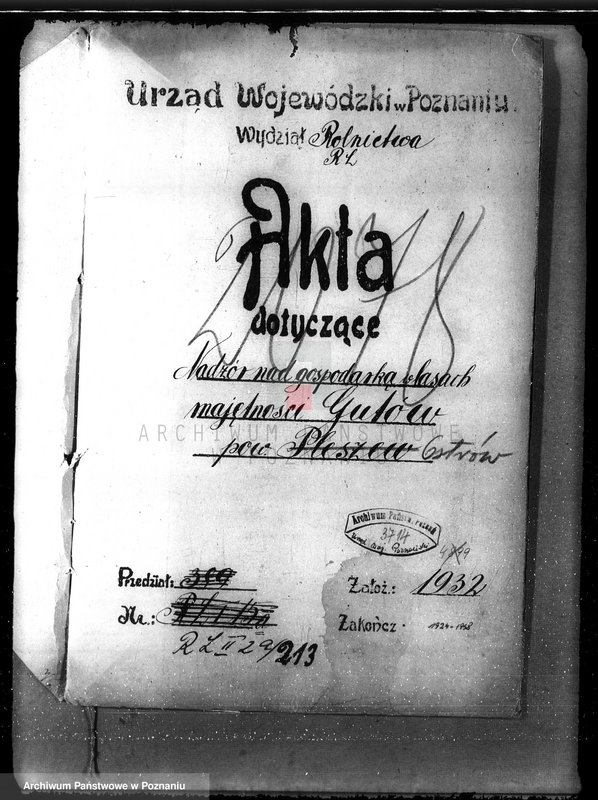 Urząd Wojewódzki w Poznaniu.
Wydział Rolnictwa
RL
Akta
dotyczące
Nadzór nad gospodarką w lasach
majętności Gutów
pow. Pleszew Ostrów
ARCHIWUM PAŃSTWOWE
W POZNANIU
Archiwum Państw. Poznań
3714
Urząd Woj. Poznański
Przedział: 389
Założ.: 1932
Nr.:
Zakończ. 1924-1938
RL II 2a/213
Archiwum Państwowe w Poznaniu